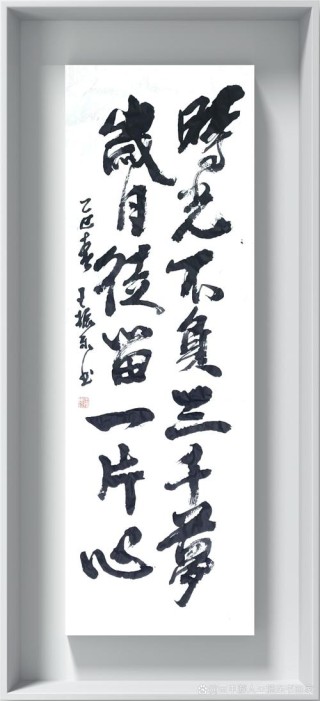 時光不負三千夢
歲月徒留一片心
乙巳春 王振东书